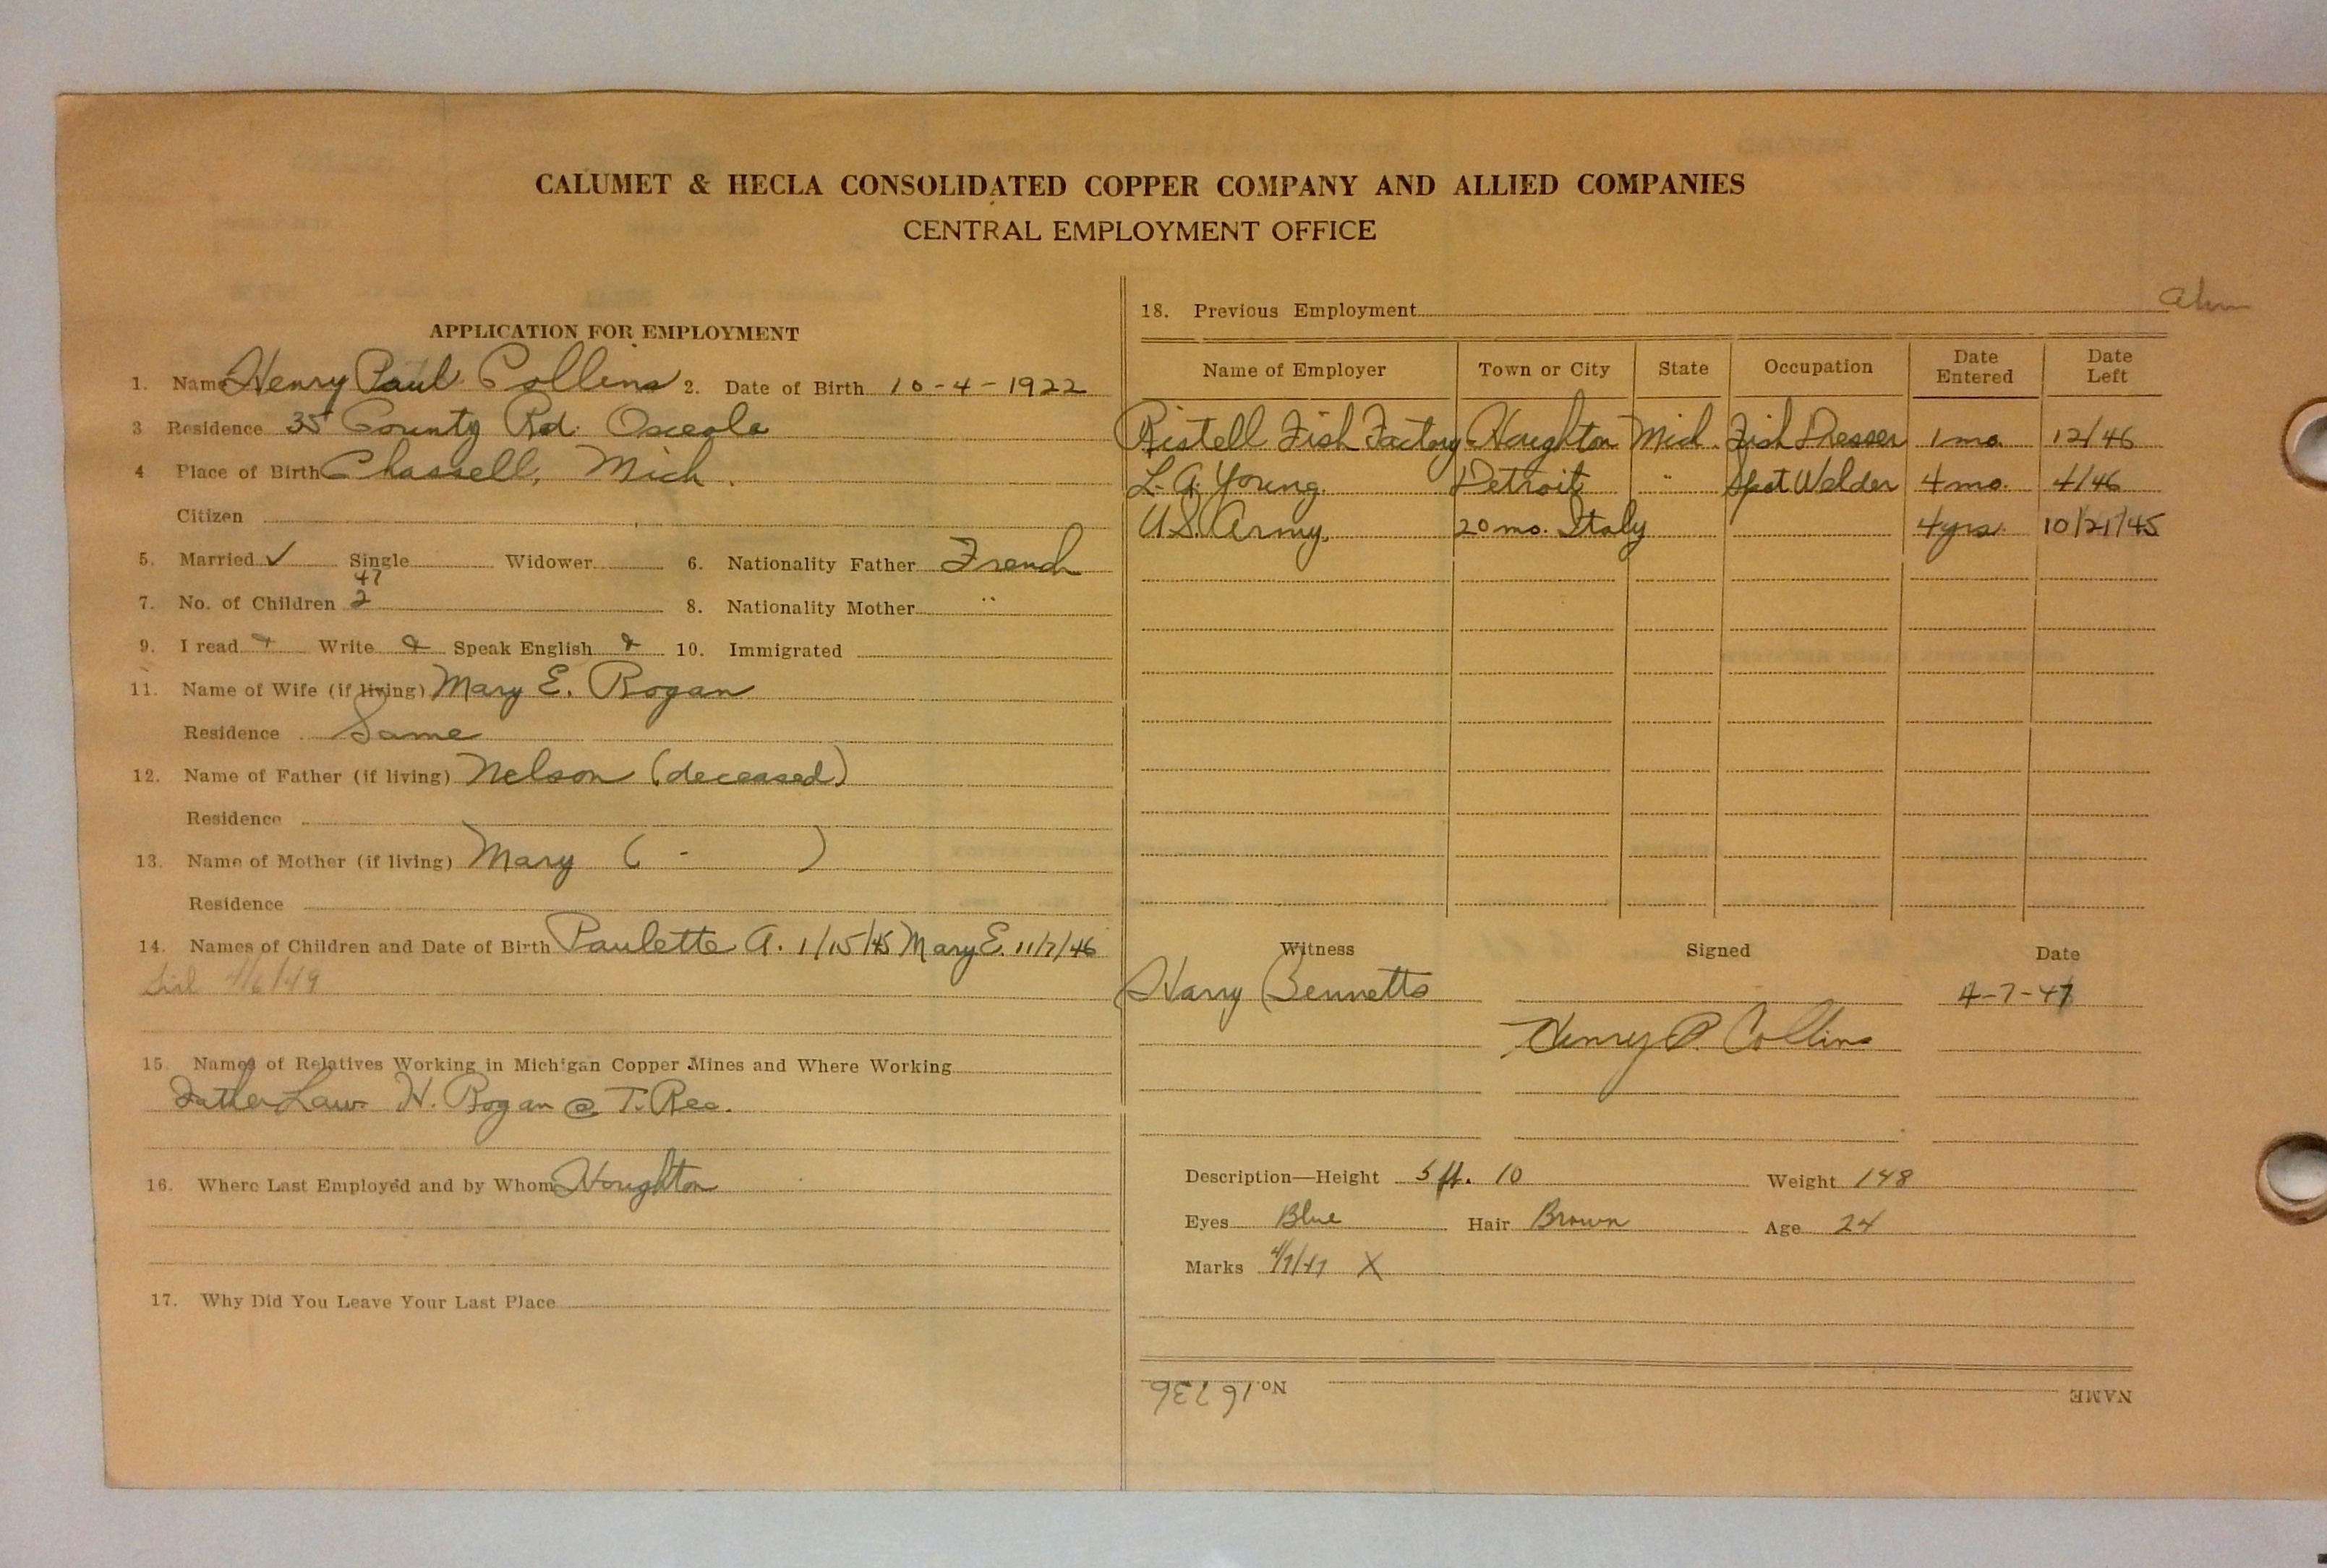 CALUMET & HECLA CONSOLIDATED COPPER COMPANY AND ALLIED COMPANIES
CENTRAL EMPLOYMENT OFFICE
APPLICATION FOR EMPLOYMENT
1. Name Henry Paul Collins 2. Date of Birth 10-4-1922
3 Residence 35 County Rd. Osceola
4 Place of Birth Chassell, Mich.
Citizen
5. Married ✓ Single Widower 6. Nationality Father French
47
7. No. of Children 2 8. Nationality Mother "
9. I read Write Speak English 10. Immigrated
11. Name of Wife (if living) Mary E. Rogan
Residence Same
12. Name of Father (if living) Nelson (deceased)
Residence
13. Name of Mother (if living) Mary ( - )
Residence
14. Names of Children and Date of Birth Paulette A. 1/15/45 Mary E. 11/7/46
Girl 4/6/49
15. Names of Relatives Working in Michigan Copper Mines and Where Working
Father Law H. Rogan @ T. Rec.
16. Where Last Employed and by Whom Houghton
17. Why Did You Leave Your Last Place
18. Previous Employment
Name of Employer Town or City State Occupation Date Entered Date Left
Ristell Fish Factory Houghton Mich. Fish Dresser 1 mo. 12/46
L. A. Young Detroit " Spot Welder 4 mo. 4/46
U.S. Army 20 mo. Italy 4 yrs. 10/21/45
Witness Signed Date
Harry Bennetts 4-7-47
Henry P. Collins
Description—Height 5 ft. 10 Weight 148
Eyes Blue Hair Brown Age 24
Marks 4/7/47 X
No. 16736
NAME